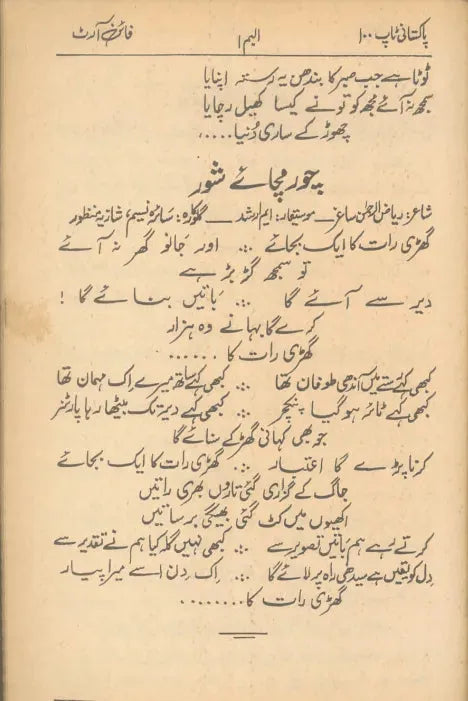 پاکستانی ٹاپ ۱۰۰
البم ۱
فائن آرٹ
ٹوٹا ہے جب میرا بندھن یہ رستہ اپنایا
سمجھ نہ آئے مجھ کو تو نے کیسا کھیل رچایا
چھوڑ کے ساری دُنیا .....
چور مچائے شور
شاعر: ریاض الرحمٰن ساغر موسیقار: ایم ارشد گلوکارہ: سائرہ نسیم، شازیہ منظور
گھڑی رات کا ایک بجائے ؞ اور جانو گھر نہ آئے
تو سمجھ گڑبڑ ہے
دیر سے آئے گا ؞ باتیں بنائے گا !
کرے گا بہانے وہ ہزار
گھڑی رات کا ......
کبھی کہے رستے میں آندھی طوفان تھا ؞ کبھی کہے ساتھ میرے اِک مہمان تھا
کبھی کہے ٹائر ہو گیا پنکچر ؞ کبھی کہے دیر تک بیٹھا رہا پارٹنر
جو بھی کہانی گھڑ کے سنائے گا
کرنا پڑے گا اعتبار ؞ گھڑی رات کا ایک بجائے
جاگ کے گزاری گئی تاروں بھری راتیں
اکھیوں میں کٹ گئی بھیگی برساتیں
کرتے رہے ہم باتیں تصویر سے ؞ کبھی نہیں گلہ کیا ہم نے تقدیر سے
دِل کو یقیں ہے سیدھی راہ پر لائے گا ؞ اِک دِن اسے میرا پیار
گھڑی رات کا ........